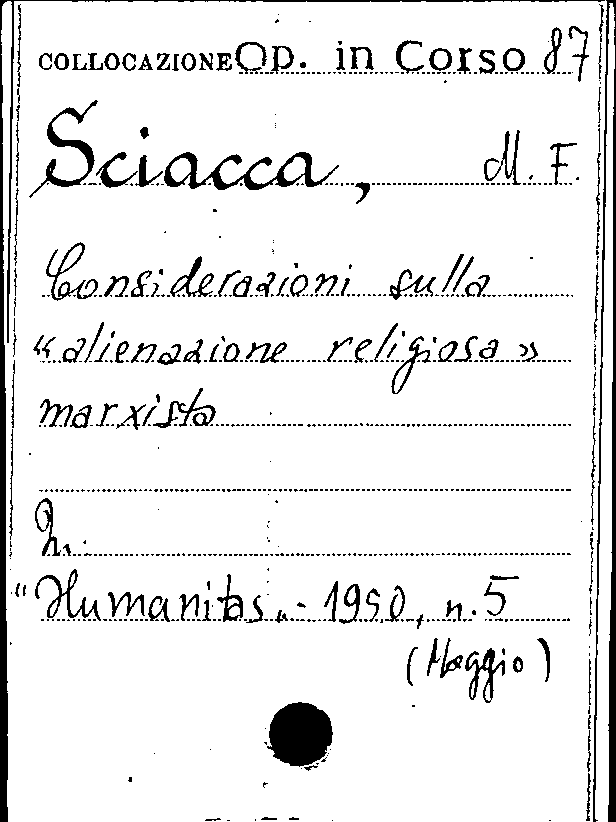 COLLOCAZIONE Op. in Corso 87
Sciacca, M. F.
Considerazioni sulla
«alienazione religiosa»
marxista
In:
"Humanitas„ - 1950, n. 5
(Maggio)